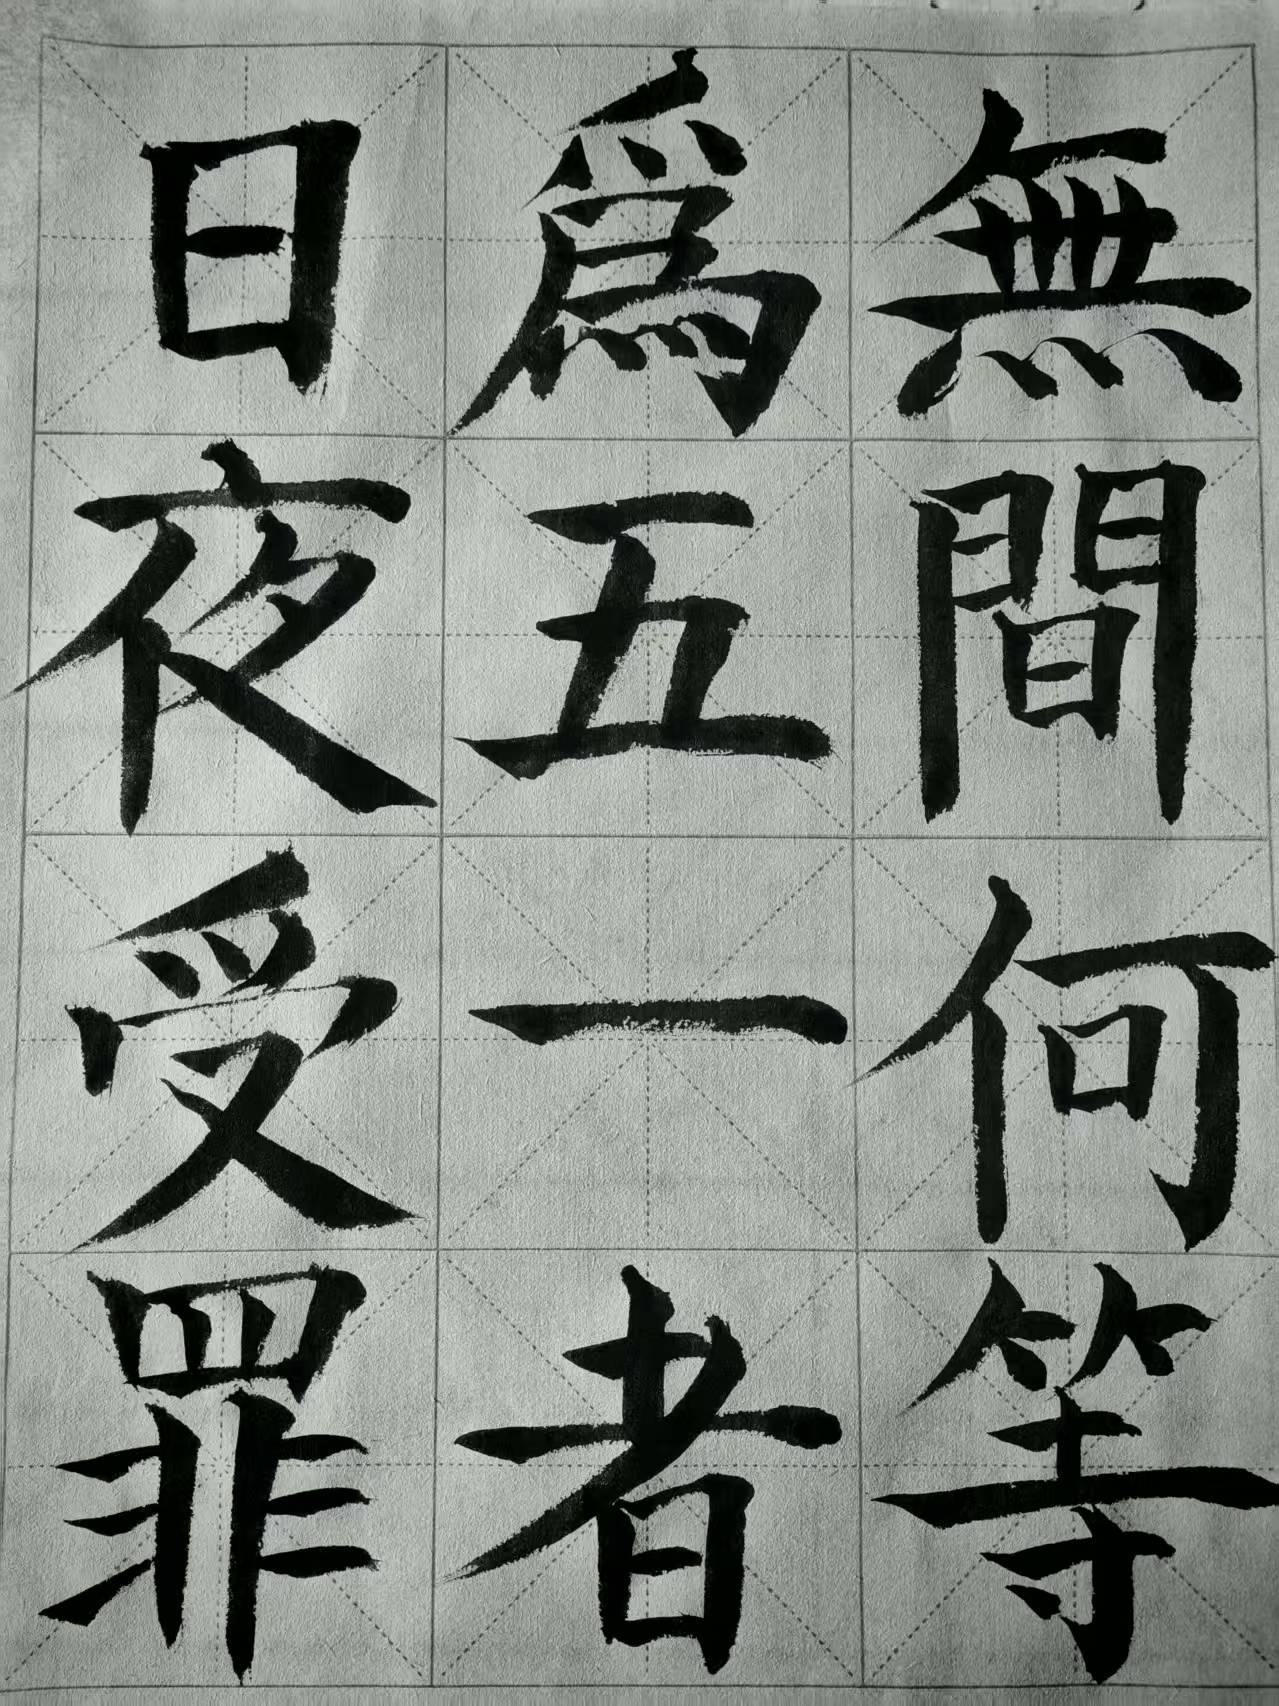 無間何等
為五一者
日夜受罪